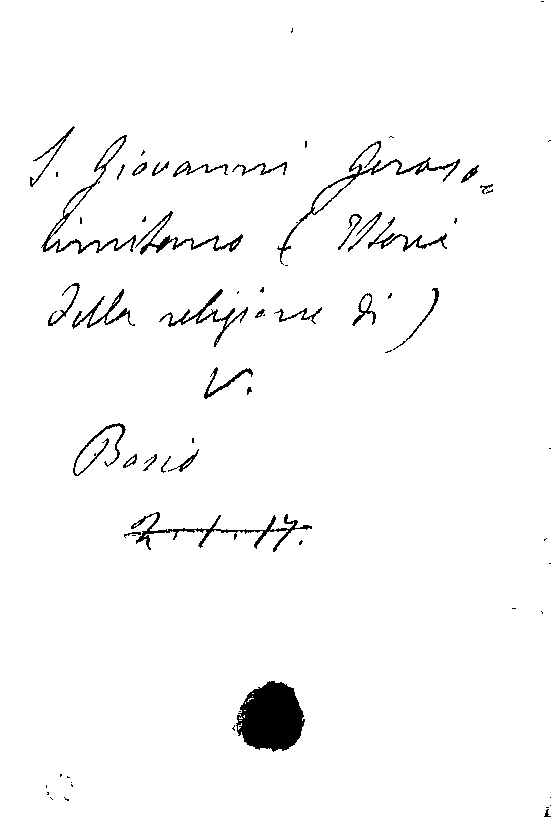 S. Giovanni Geroso=
limitano ( Istoria
della religione di )
V.
Bosio
2.1.17.